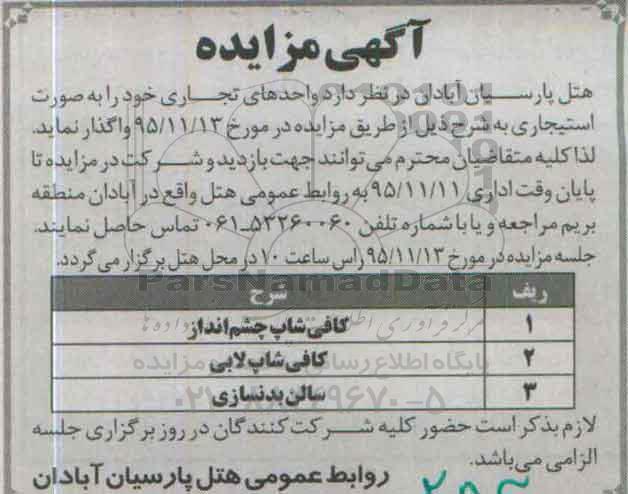 آگهی مزایده
هتل پارسیان آبادان در نظر دارد واحدهای تجاری خود را به صورت
استیجاری به شرح ذیل از طریق مزایده در مورخ ۹۵/۱۱/۱۳ واگذار نماید.
لذا کلیه متقاضیان محترم می‌توانند جهت بازدید و شرکت در مزایده تا
پایان وقت اداری ۹۵/۱۱/۱۱ به روابط عمومی هتل واقع در آبادان منطقه
بریم مراجعه و یا با شماره تلفن ۵۳۲۶۰۰۶۰-۰۶۱ تماس حاصل نمایند.
جلسه مزایده در مورخ ۹۵/۱۱/۱۳ راس ساعت ۱۰ در محل هتل برگزار می گردد.
ParsNamadData
ریف شرح
۱ کافی شاپ چشم انداز
۲ کافی شاپ لابی
پایگاه اطلاع رسانی مزایده
۳ سالن بدنسازی
لازم بذکر است حضور کلیه شرکت کنندگان در روز برگزاری جلسه
الزامی می‌باشد.
روابط عمومی هتل پارسیان آبادان